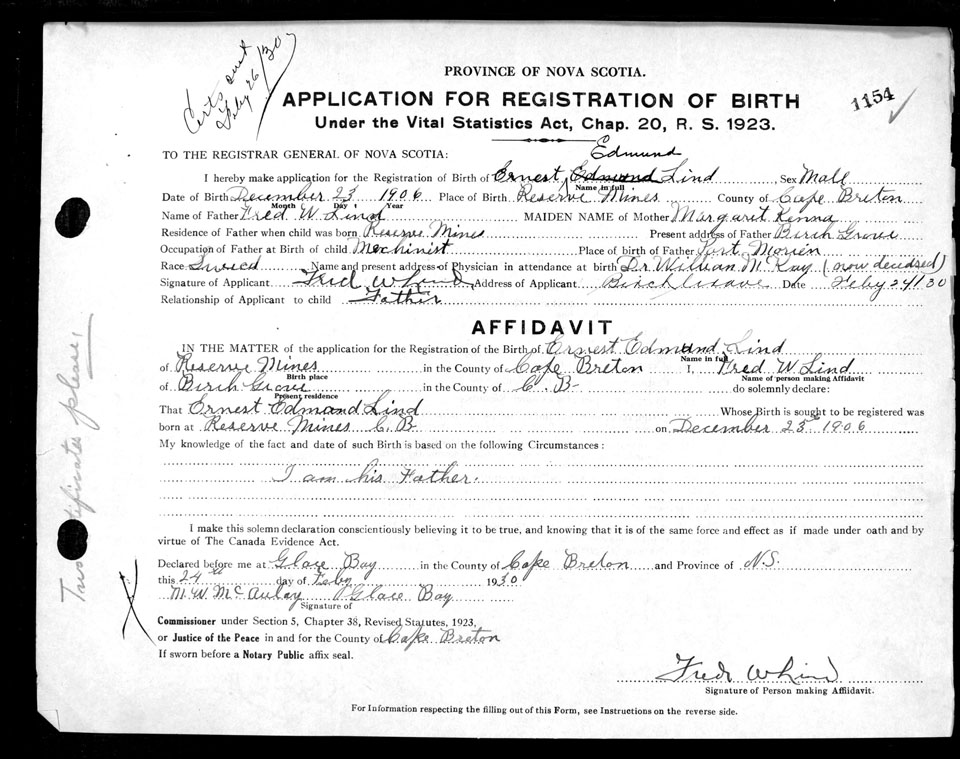 Certs sent
Feby 26/30
PROVINCE OF NOVA SCOTIA.
1154
APPLICATION FOR REGISTRATION OF BIRTH
Under the Vital Statistics Act, Chap. 20, R. S. 1923.
TO THE REGISTRAR GENERAL OF NOVA SCOTIA:
Edmund
I hereby make application for the Registration of Birth of Ernest Edmund Lind Sex Male
Name in full
Date of Birth December 23 1906 Place of Birth Reserve Mines County of Cape Breton
Month Day Year
Name of Father Fred W. Lind MAIDEN NAME of Mother Margaret Kenna
Residence of Father when child was born Reserve Mines Present address of Father Birch Grove
Occupation of Father at Birth of child Machinist Place of birth of Father Port Morien
Race Sweed Name and present address of Physician in attendance at birth Dr William McKay (now decidsed)
Signature of Applicant Fred W Lind Address of Applicant Birch Grove Date Feby 24/30
Relationship of Applicant to child Father
AFFIDAVIT
IN THE MATTER of the application for the Registration of the Birth of Ernest Edmund Lind
Name in full
of Reserve Mines in the County of Cape Breton I, Fred W Lind
Birth place Name of person making Affidavit
of Birch Grove in the County of C. B. do solemnly declare:
Present residence
That Ernest Edmond Lind Whose Birth is sought to be registered was
born at Reserve Mines C. B. on December 23rd 1906
My knowledge of the fact and date of such Birth is based on the following Circumstances:
I am his Father.
I make this solemn declaration conscientiously believing it to be true, and knowing that it is of the same force and effect as if made under oath and by
virtue of The Canada Evidence Act.
Declared before me at Glace Bay in the County of Cape Breton and Province of N.S.
this 24th day of Feby 1930
M. W. McAulay Glace Bay
Signature of
Commissioner under Section 5, Chapter 38, Revised Statutes, 1923,
or Justice of the Peace in and for the County of Cape Breton
If sworn before a Notary Public affix seal.
Fred W Lind
Signature of Person making Affiidavit.
For Information respecting the filling out of this Form, see Instructions on the reverse side.
Two certificates please,